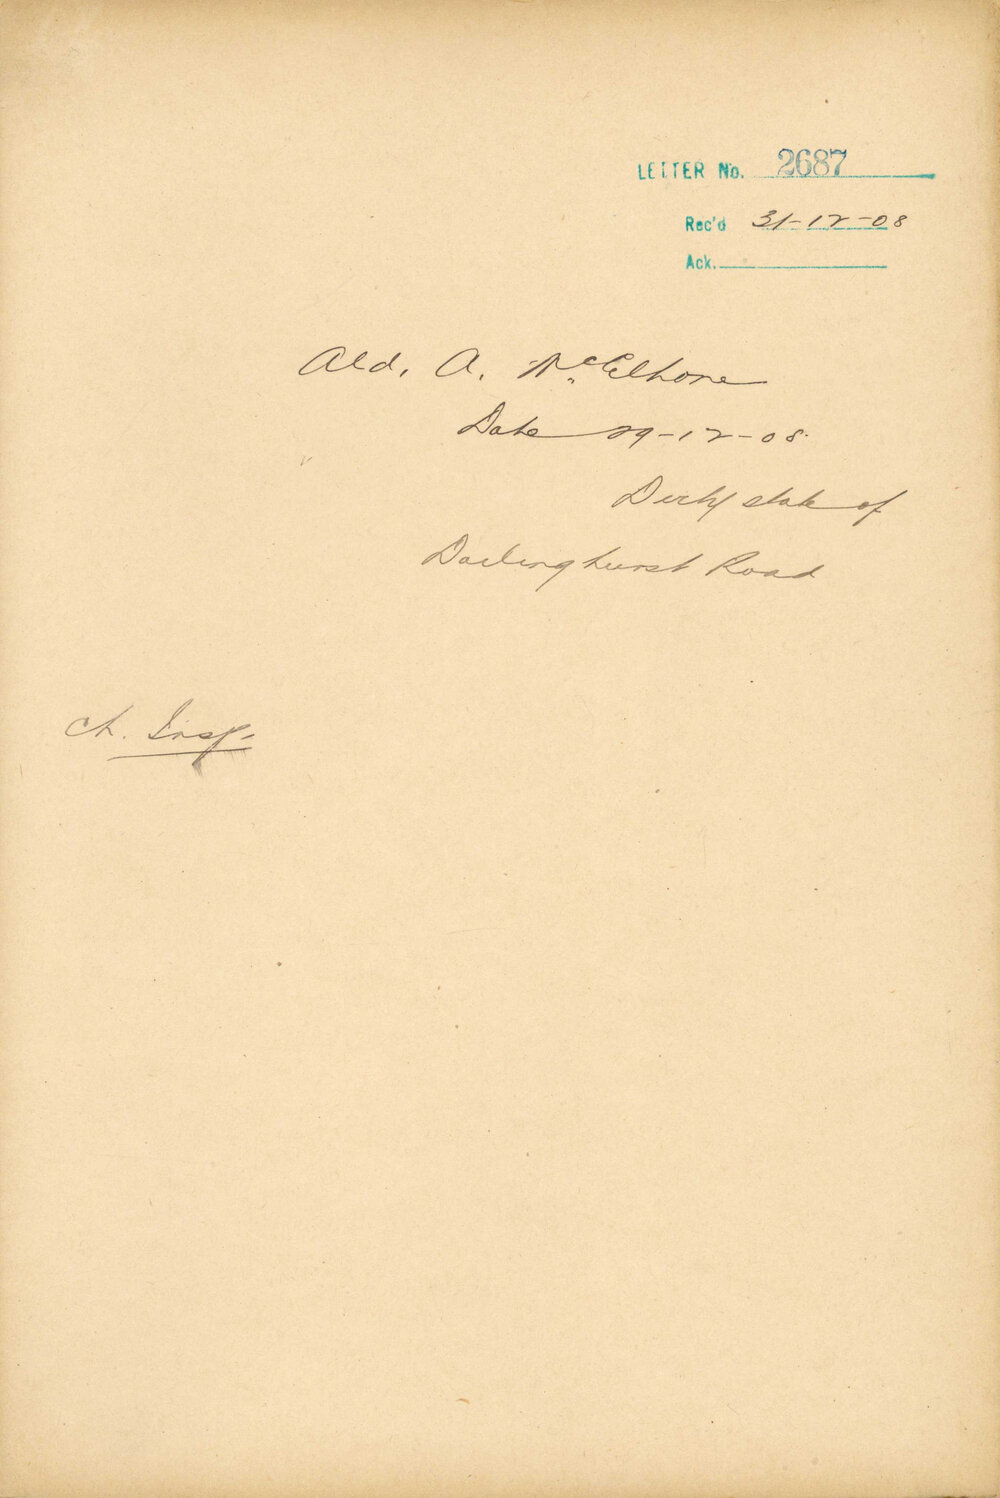 LETTER No. 2687
Rec'd 31-12-08
Ack.
Ald. A. McElhone
Date 29-12-08.
Dirty state of
Darlinghurst Road
Ch. Insp.